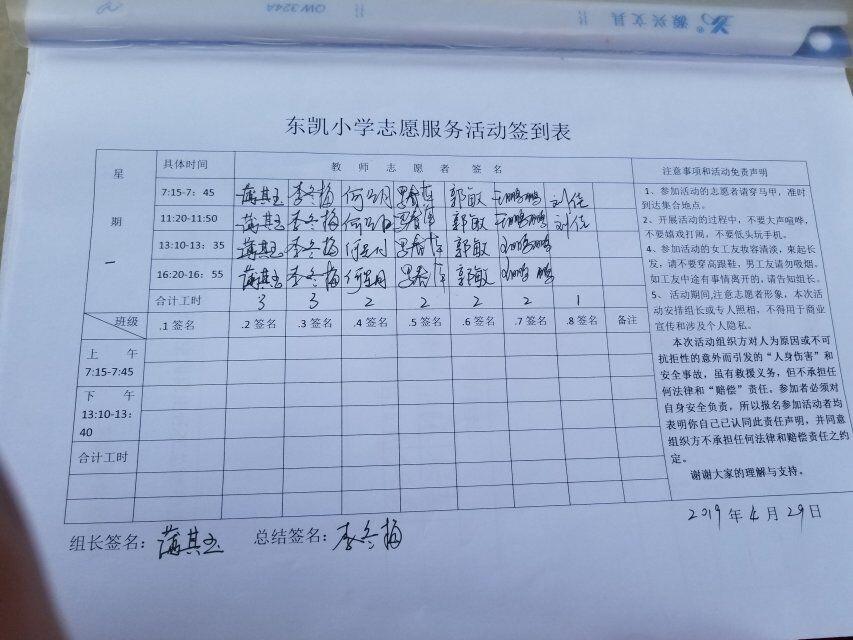 QW 324A
振兴文具
东凯小学志愿服务活动签到表
星期一
具体时间 教师志愿者签名 注意事项和活动免责声明
7:15-7：45 李冬梅 郭敏 刘佳
11:20-11:50 李冬梅 郭敏 刘佳
13:10-13：35 李冬梅 郭敏
16:20-16：55 李冬梅 郭敏
合计工时 3 3 2 2 2 2 1
班级 .1 签名 .2 签名 .3 签名 .4 签名 .5 签名 .6 签名 .7 签名 .8 签名 备注
上午
7:15-7:45
下午
13:10-13：
40
合计工时
1、参加活动的志愿者请穿马甲，准时
到达集合地点。
2、开展活动的过程中，不要大声喧哗，
不要嬉戏打闹，不要低头玩手机。
4、参加活动的女工友妆容清淡，束起长
发，请不要穿高跟鞋，男工友请勿吸烟。
如工友中途有事情离开的，请告知组长。
5、活动期间,注意志愿者形象，本次活
动安排组长或专人照相，不得用于商业
宣传和涉及个人隐私。
本次活动组织方对人为原因或不可
抗拒性的意外而引发的“人身伤害”和
安全事故，虽有救援义务，但不承担任
何法律和“赔偿”责任。参加者必须对
自身安全负责，所以报名参加活动者均
表明你自己已认同此责任声明，并同意
组织方不承担任何法律和赔偿责任之约
定。
谢谢大家的理解与支持。
2019年4月29日
组长签名： 总结签名：李冬梅